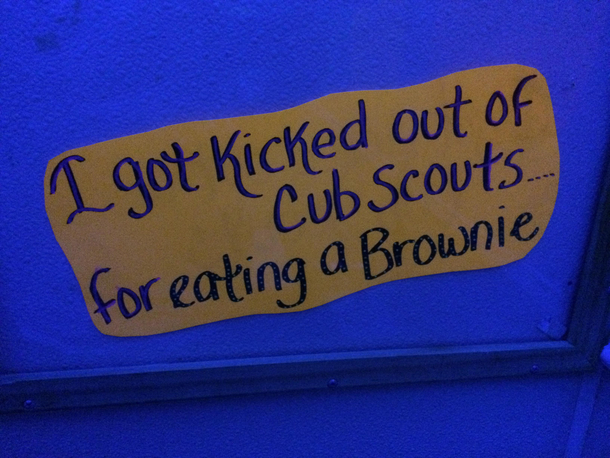 I got Kicked out of
Cub Scouts....
for eating a Brownie